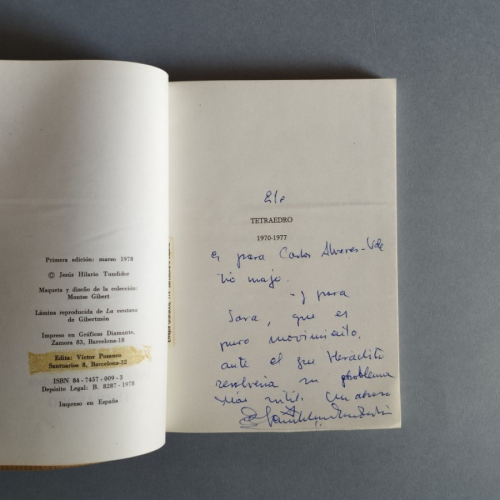 Primera edición: marzo 1978
© Jesús Hilario Tundidor
Maqueta y diseño de la colección:
Montse Gibert
Lámina reproducida de La ventana
de Gibertmón
Impreso en Gráficas Diamante,
Zamora 83, Barcelona-18
Edita: Víctor Pozanco
Santuarios 8, Barcelona-32
ISBN 84-7457-009-3
Depósito Legal: B. 8287-1978
Impreso en España
TETRAEDRO
1970-1977
es para Carlos Alvarez-
tío majo.
-y para
Sara, que es
puro movimiento,
ante el que Heráclito
resolvería su problema
más sutil. Un abrazo